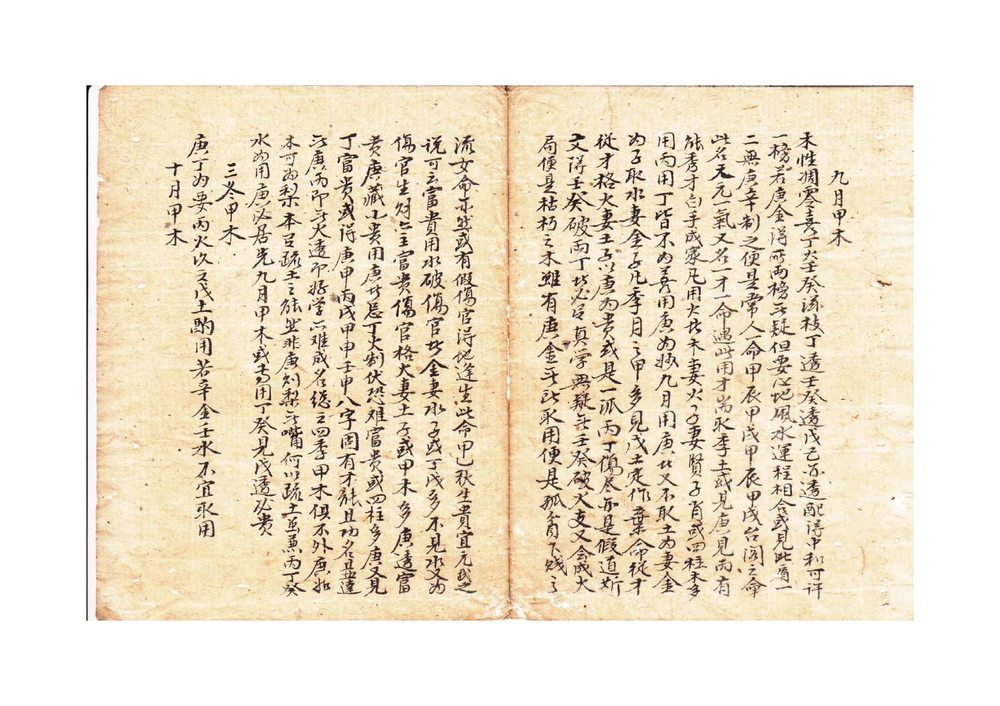 九月甲木
木性凋零喜丁火壬癸滋枝丁透壬癸透戊己亦透配得中和可許
一榜若庚金得所兩榜無疑但要心地風水運程相合或見比肩一
二無庚辛制之便是常人一命甲辰甲戌甲辰甲戌台閣之命
此名天元一氣又名一才一命遇此用才耑取季土或見庚見丙有
能秀才白手成家凡用火者木妻火子妻賢子肖或四柱木多
用丙用丁皆不为善用庚为妙九月用庚者又不取土为妻金
为子取水妻金子凡季月之甲多見戊土定作棄命從才
從才格火妻土子以庚为貴或是一派丙丁傷尽亦是假道斯
文得壬癸破丙丁者必是真学無疑無壬癸破火支又會成火
局便是枯朽之木雖有庚金無所取用便是孤貧下賤之
流女命亦然或有假傷官得地逢生此命甲乙秋生貴宜元武之
说可云富貴用水破傷官者金妻水子或丁戊多不見水又为
傷官生财亦主富貴傷官格火妻土子或甲木多庚透富
貴庚藏小貴用庚者忌丁火制伏恐难富貴或四柱多庚又見
丁富貴或得庚申丙戌甲申壬申八字固有才能且功名且達
無庚丙即無火透即好学亦难成名總之四季甲木俱不外庚如
木可为梨木豈疏土之能然非庚则梨無嘴何以疏土虽兼丙丁癸
水为用庚必居先九月甲木或专用丁癸見戊透必貴
三冬甲木
庚丁为要丙火次又戊土酌用若辛金壬水不宜取用
十月甲木